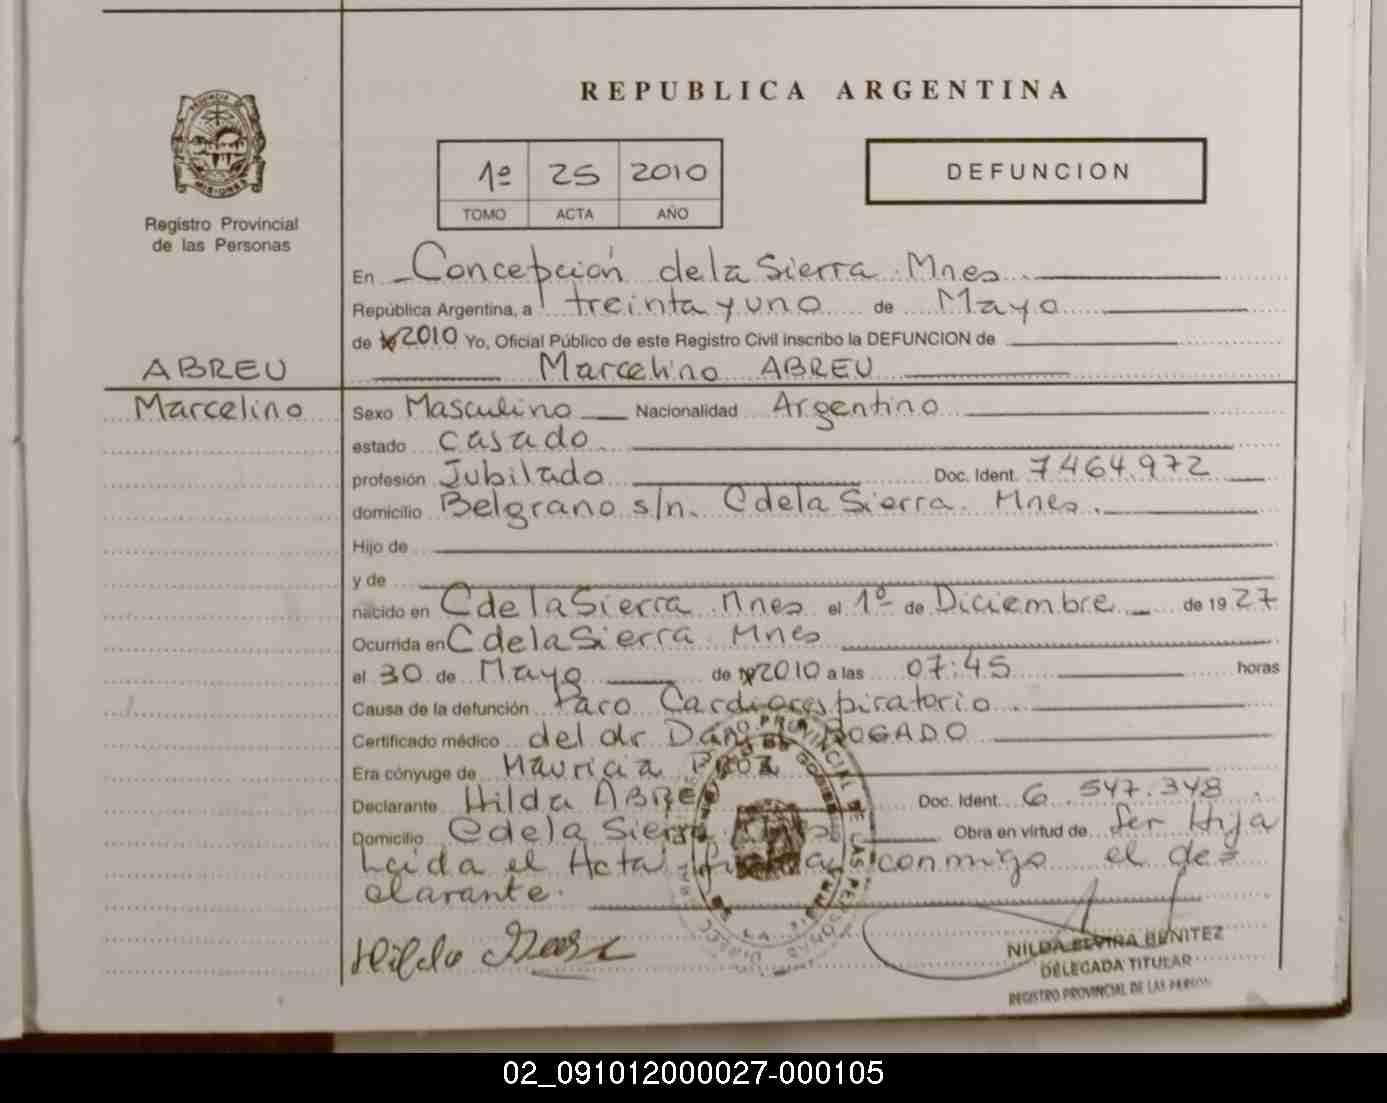 REPUBLICA ARGENTINA
PROVINCIA DE MISIONES
Registro Provincial
de las Personas
1º 25 2010
TOMO ACTA AÑO
DEFUNCION
En Concepción de la Sierra Mnes
República Argentina, a treinta y uno de Mayo
de 2010 Yo, Oficial Público de este Registro Civil inscribo la DEFUNCION de
ABREU Marcelino ABREU
Marcelino
Sexo Masculino Nacionalidad Argentino
estado casado
profesión Jubilado Doc. Ident. 7.464.972
domicilio Belgrano s/n. C de la Sierra Mnes.
Hijo de
y de
nacido en C de la Sierra Mnes el 1º de Diciembre de 1927
Ocurrida en C de la Sierra Mnes
el 30 de Mayo de 2010 a las 07:45 horas
Causa de la defunción Paro Cardiorespiratorio
Certificado médico del dr BOGADO
Era cónyuge de Mauricia
Declarante Hilda ABREU Doc. Ident. 6.547.348
Domicilio C de la Sierra Mnes Obra en virtud de Ser Hija
Leida el Acta, conmigo el de=
clarante.
Hilda
NILDA ELVIRA BENITEZ
DELEGADA TITULAR
REGISTRO PROVINCIAL DE LAS PERSON
02_091012000027-000105